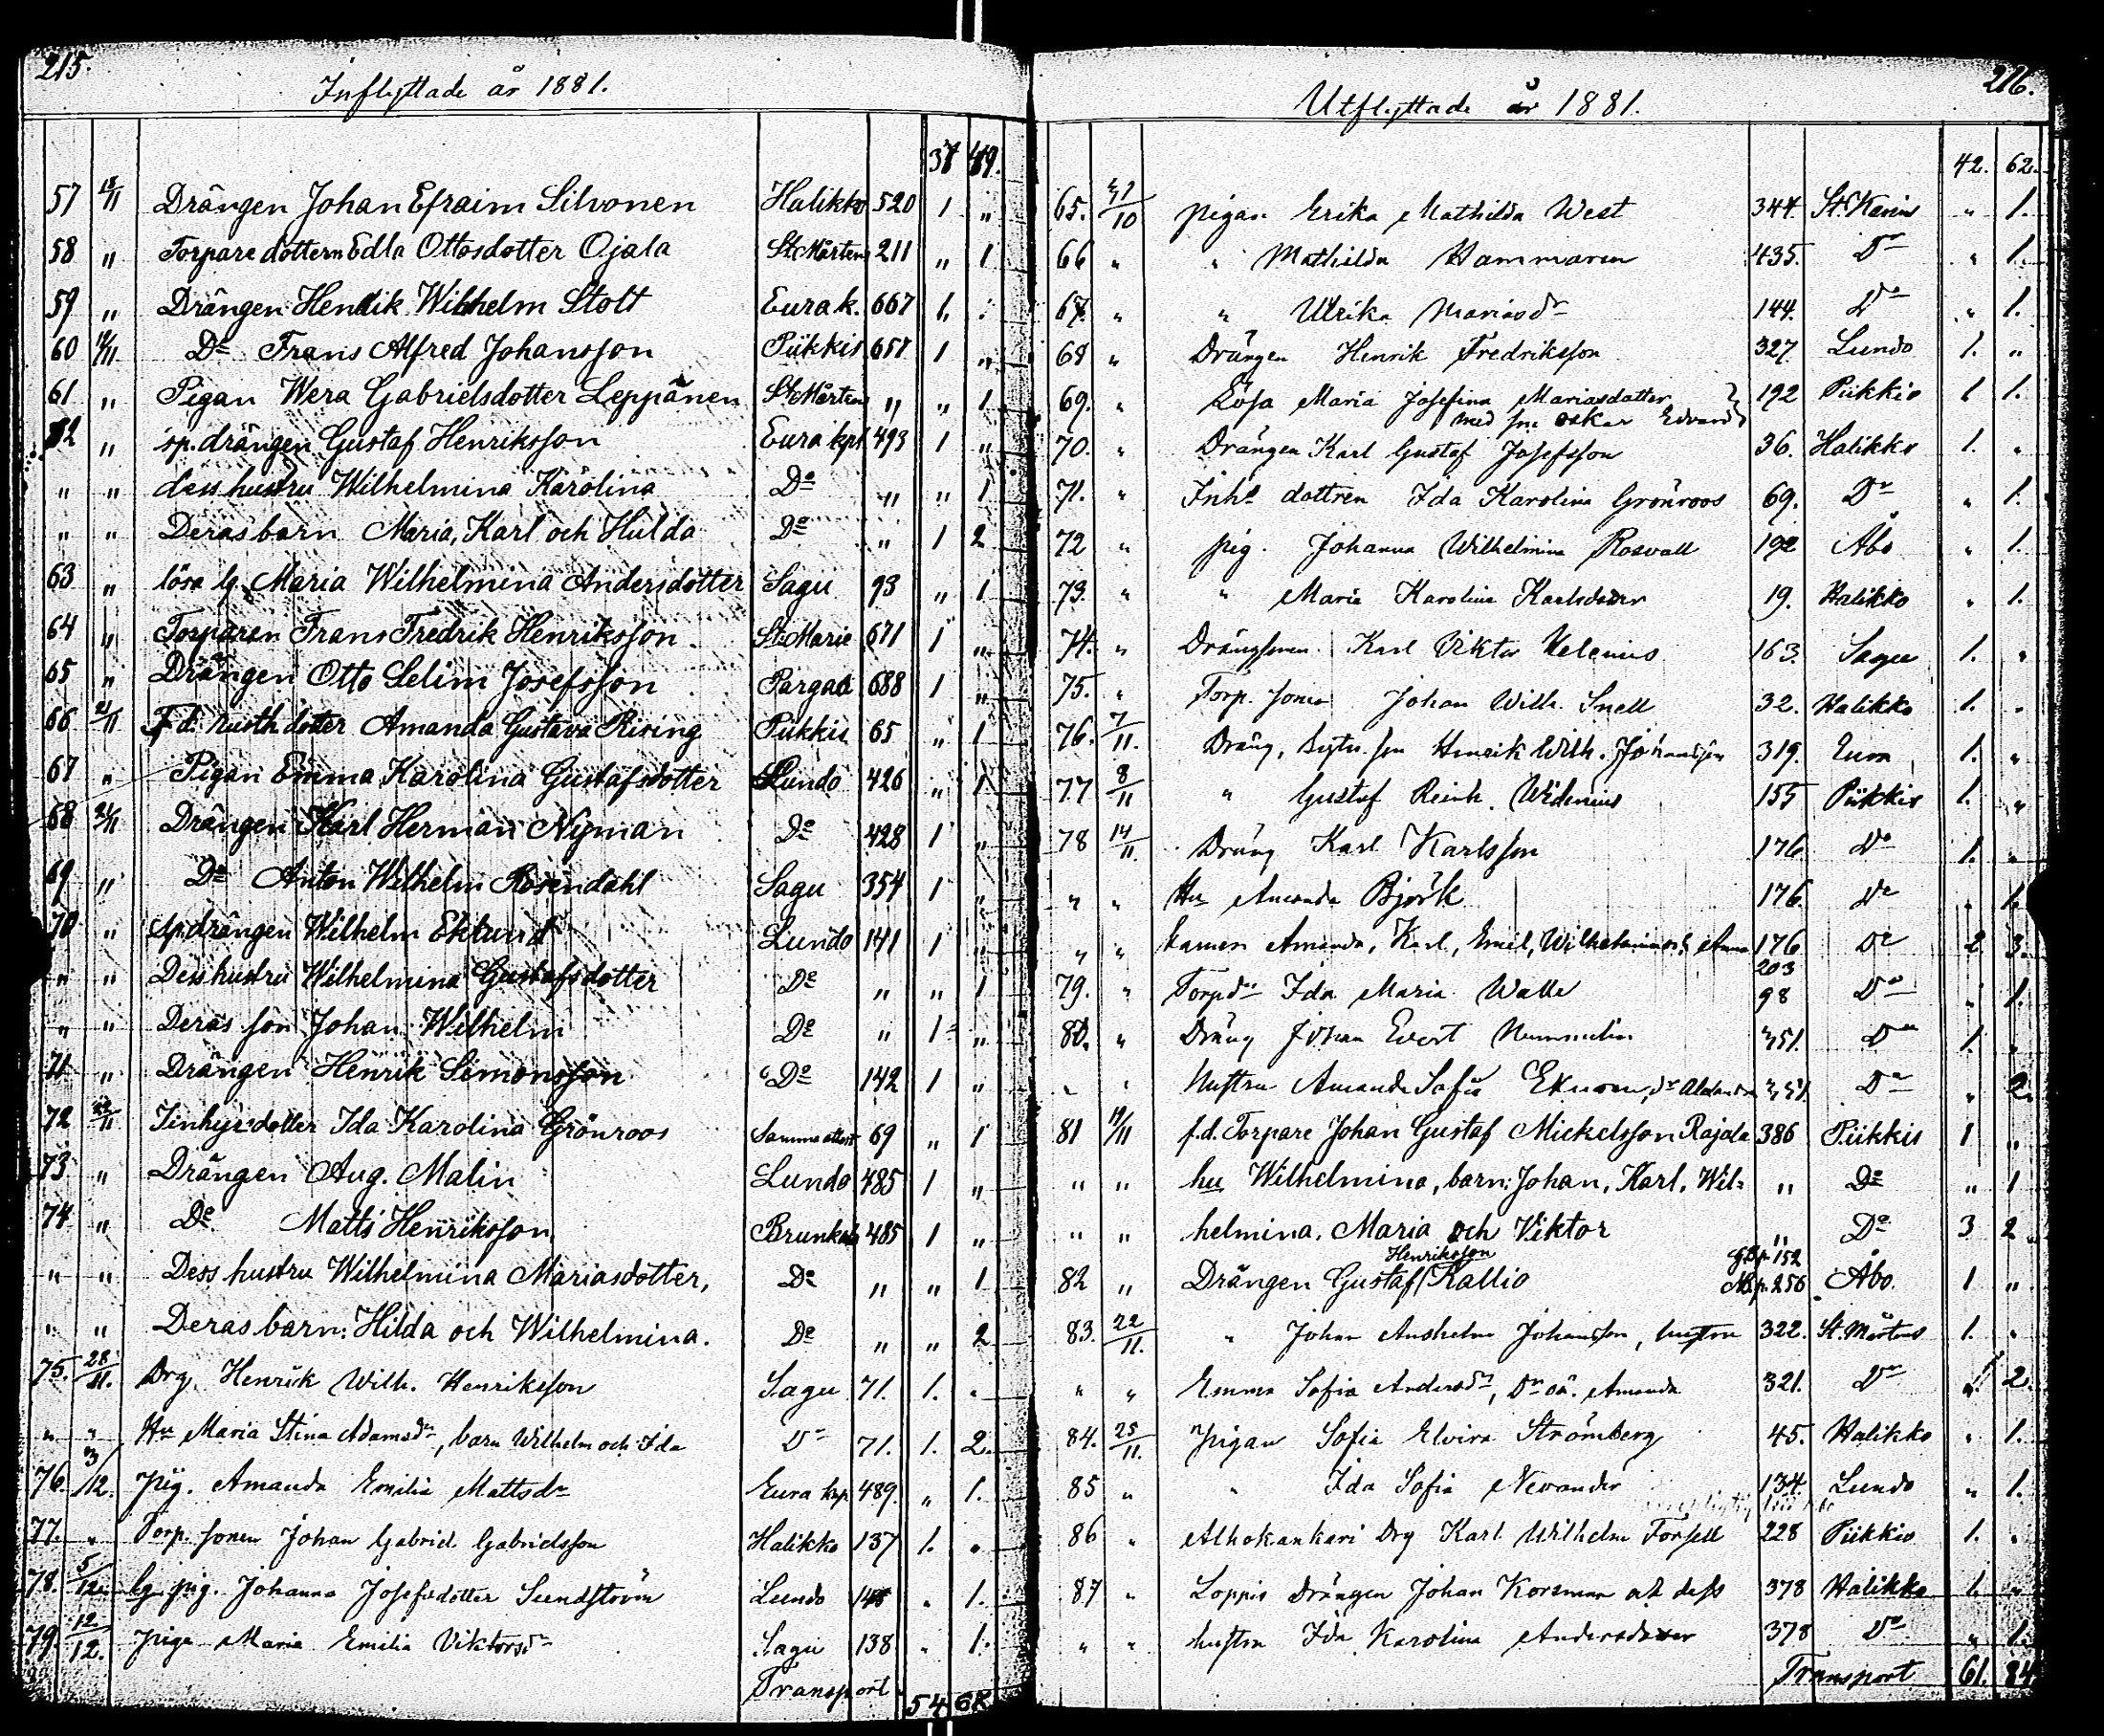 215.
Inflyttade år 1881.
37 49.
57 18/11 Drängen Johan Efraim Silvonen Halikko 520 1 "
58 " Torpare dottern Edla Ottosdotter Ojala St Mårtens 211 " 1
59 " Drängen Hendik Wilhelm Stolt Eura k. 667 1 "
60 19/11 Do Frans Alfred Johansson Piikkis 657 1 "
61 " Pigan Wera Gabrielsdotter Leppänen St Mårtens " " 1
62 " sp. drängen Gustaf Henriksson Eura kpl 493 1 "
" " dess hustru Wilhelmina Karolina Do " " 1
" " Deras barn Maria, Karl och Hulda Do " 1 2
63 " lösa Maria Wilhelmina Andersdotter Sagu 93 " 1
64 " Torparen Frans Fredrik Henriksson St Marie 671 1 "
65 " Drängen Otto Selim Josefsson Pargas 688 1 "
66 21/11 F. d. rusth dotter Amanda Gustava Rising Piikkis 65 " 1
67 " Pigan Emma Karolina Gustafsdotter Lundo 426 " 1
68 Drängen Karl Herman Nyman Do 428 1 "
69 " Do Anton Wilhelm Rosendahl Sagu 354 1 "
70 " sp. drängen Wilhelm Eklund Lundo 141 1 "
" " Dess hustru Wilhelmina Gustafsdotter Do " " 1
" " Deras son Johan Wilhelm Do " 1 "
71 " Drängen Henrik Simonsson Do 142 1 "
72 Inhysdotter Ida Karolina Grönroos 69 " 1
73 " Drängen Aug. Malin Lundo 485 1 "
74 " Do Matts Henriksson 485 1 "
" " Dess hustru Wilhelmina Mariasdotter, Do " " 1
" " Deras barn: Hilda och Wilhelmina. Do " " 2
75. 28/11. Drg. Henrik Wilh. Henriksson Sagu 71. 1. "
" " Hu Maria Stina Adamsdr, barn Wilhelm och Ida Do 71. 1. 2.
76. 3/12. pig. Amanda Emilia Mattsdr Eura kap 489. " 1.
77. " Torp. sonen Johan Gabriel Gabrielsson Halikko 137 1. "
78. 5/12. pig. Johanna Josefsdotter Sundström Lundo " 1.
79. 12/12. piga Maria Emilia Viktorsdr Sagu 138 " 1.
Transport 54
216.
Utflyttade år 1881.
42. 62.
65. pigan Erika Mathilda West 344. St. Karins " 1.
66 " " Mathilda Hammaren 435. Do " 1.
67. " " Ulrika Mariasdr 144. Do " 1.
68 " Drängen Henrik Fredriksson 327. Lundo 1. "
69. " Lösa Maria Josefina Mariasdotter 192 Piikkis 1 1.
med son Oskar Edvard
70. " Drängen Karl Gustaf Josefsson 36. Halikko 1. "
71. " Inhs dottren Ida Karolina Grönroos 69. Do " 1.
72 " pig. Johanna Wilhelmina Rosvall 192 Åbo " 1.
73. " " Maria Karolina Karlsdotter 19. Halikko " 1.
74. " Drängsonen Karl Viktor Helenius 163. Sagu 1. "
75. " Torp. sonen Johan Wilh. Snell 32. Halikko 1. "
76. 7/11. Dräng, son Henrik Wilh. Johansson 319. Eura 1. "
77 8/11 " Gustaf Reinh. Widenius 155 Piikkis 1. "
78 14/11. Dräng Karl Karlsson 176 Do 1. "
" " Hu Amanda Björk 176. Do " 1.
" " Amanda, Karl, Emil, Wilhelmina och Anna 176 Do 2 3.
203
79. " Torpdr Ida Maria Walle 98 Do " 1.
80. " Dräng Johan Evert Nummelin 451. Do 1. "
" " Hustru Amanda Sofia Do " 2.
81 19/11 f.d. Torpare Johan Gustaf Mickelsson Rajala 386 Piikkis 1 "
" " hu Wilhelmina, barn: Johan, Karl, Wil= " Do " 1
" " helmina, Maria och Viktor " Do 3 2
Henriksson
82 " Drängen Gustaf Kallio 152 256 Åbo. 1 "
83. 22/11. " Johan Anshelm Johansson, hustru 322. St. Mårtens 1. "
" " Emma Sofia Andersdr, Amanda 321. Do 2.
84. 25/11. Pigan Sofia Elvira Strömberg 45. Halikko " 1.
85 " " Ida Sofia Nevander 134. Lundo " 1.
86 " Alhokankari Drg Karl Wilhelm Forsell 228 Piikkis 1. "
87 " Loppis Drängen Johan Korsman och dess 378 Halikko 1. "
" " hustru Ida Karolina Andersdotter 378 Do " 1.
Transport 61. 84